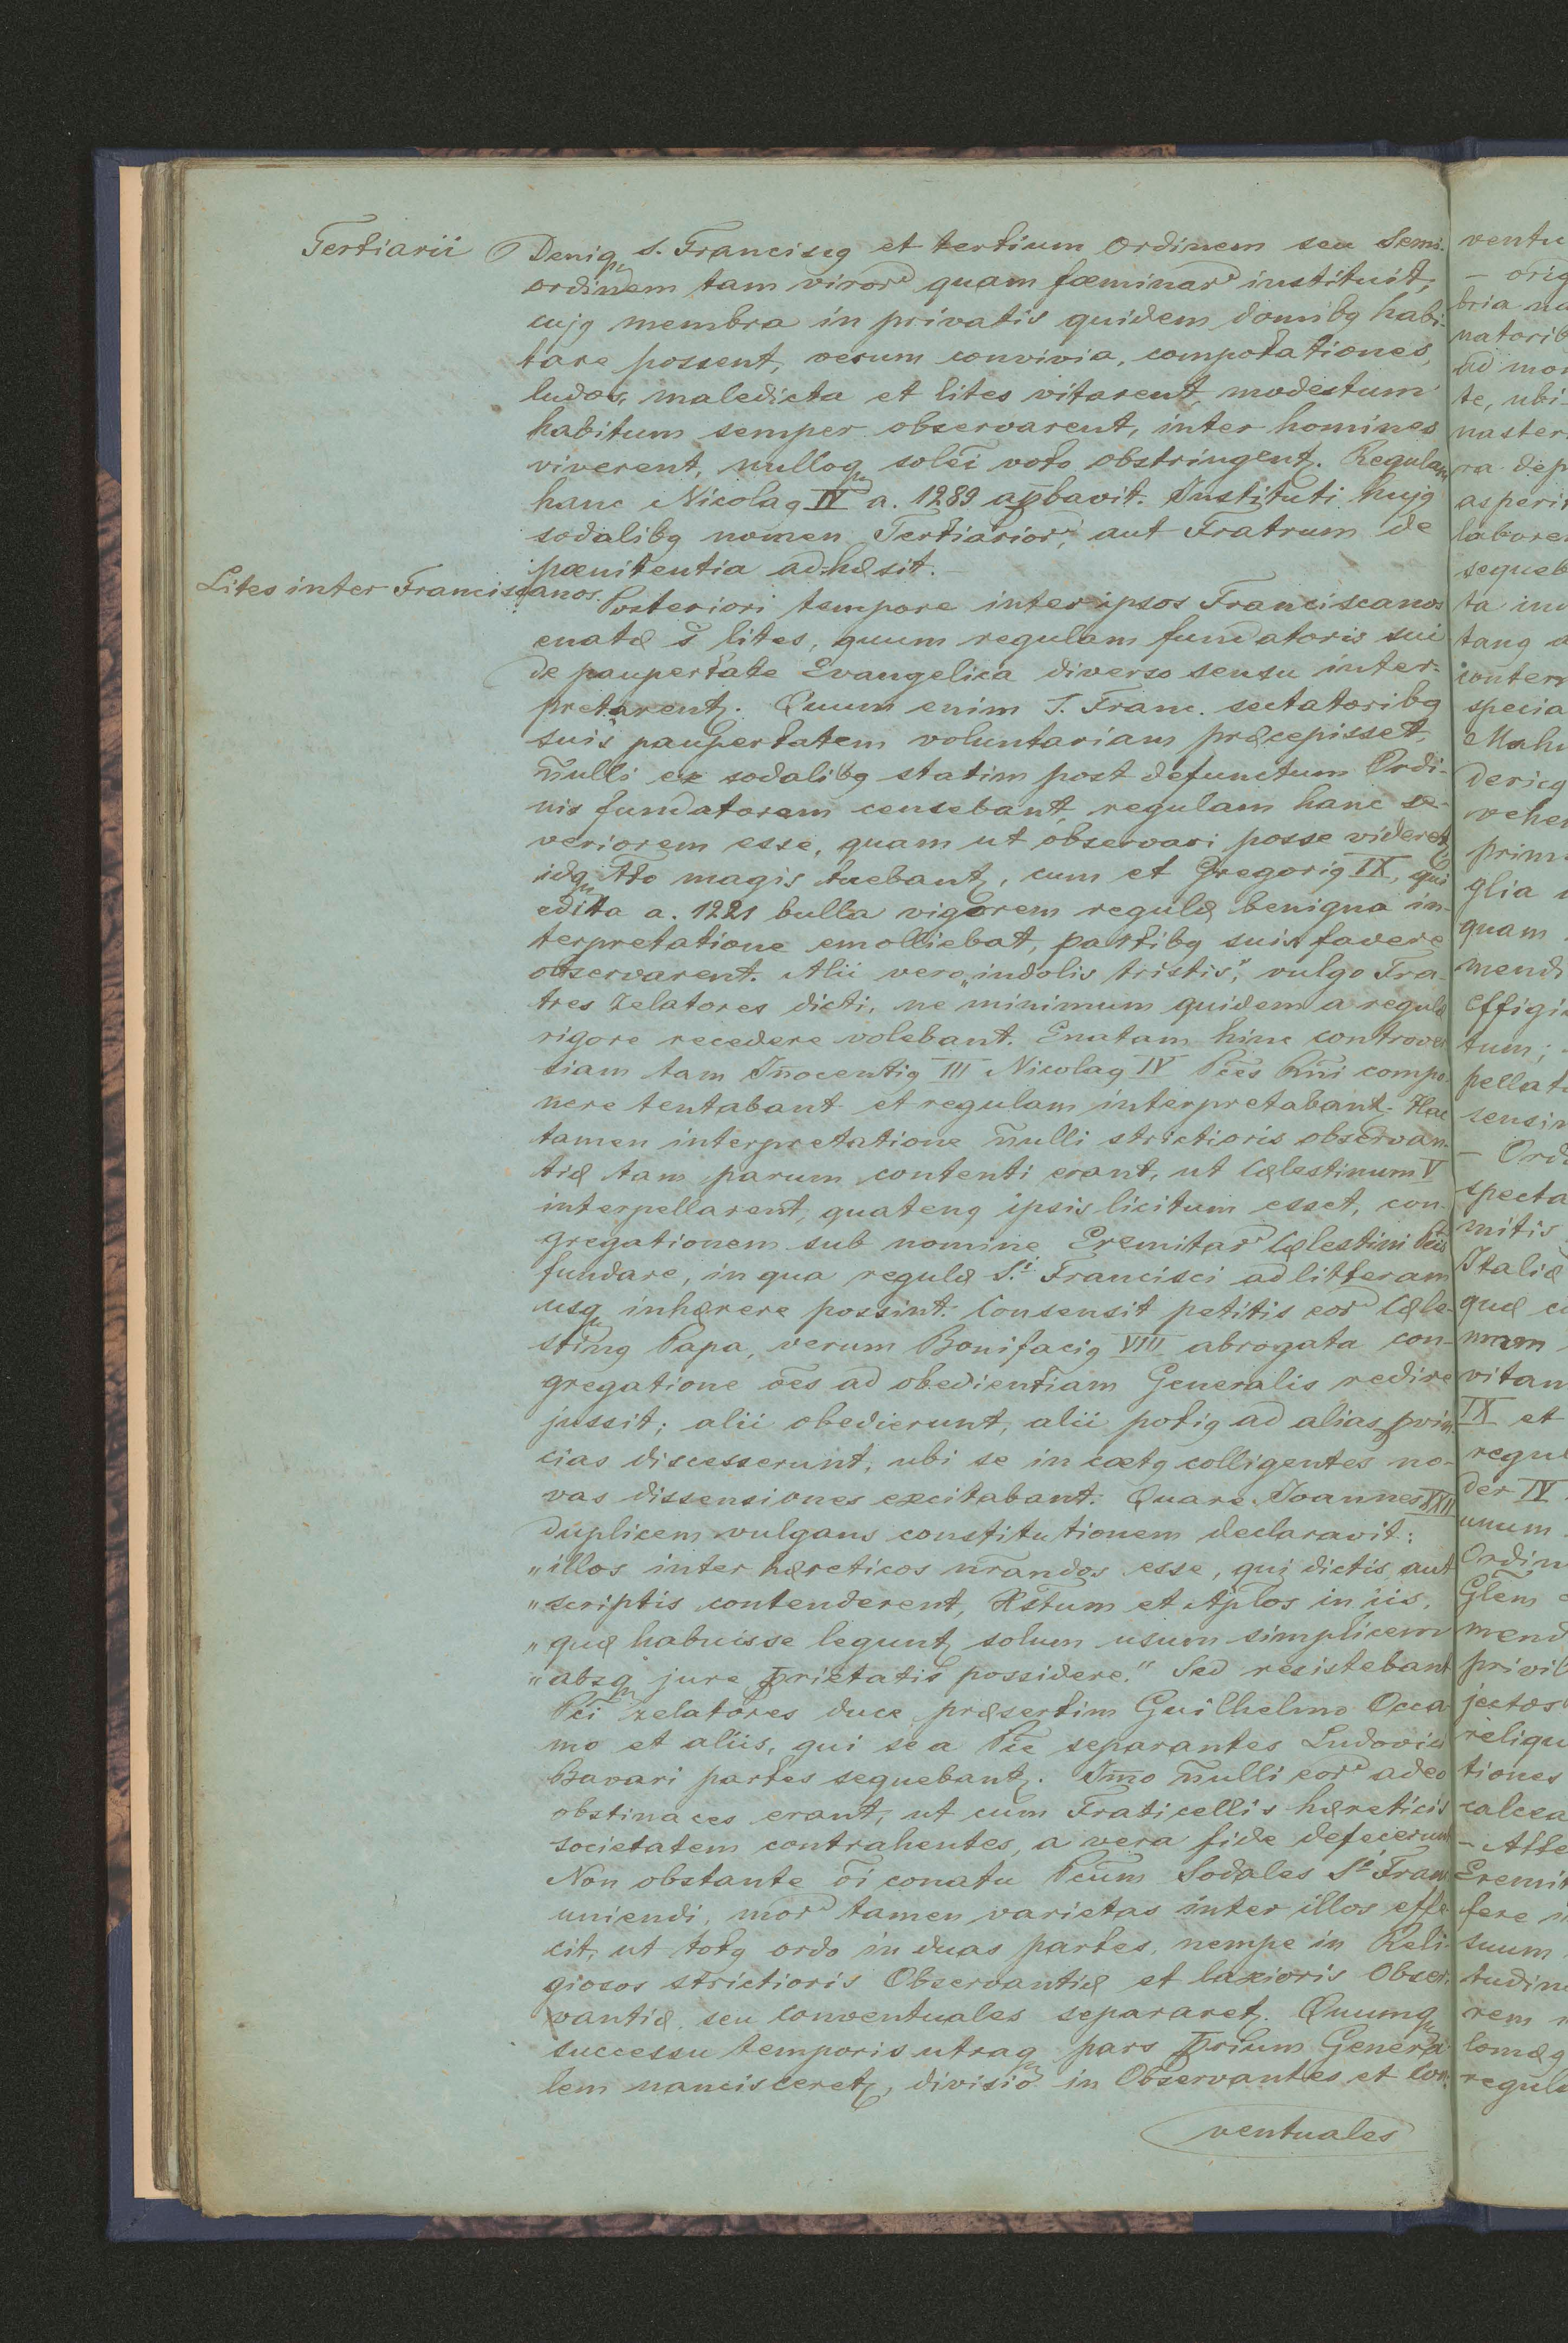 Tertiarii
Deniq̨ S. Franciscꝯ et tertium Ordinem seu Semi-
ordinem tam virorꝺ quam fœminarꝺ instituit,
cujꝯ membra in privatis quidem domibꝯ habi-
tare possent, verum convivia, compotationes,
ludos, maledicta et lites vitarent, modestum
habitum semper observarent, inter homines
viverent, nulloq̨ solēi voto obstringentꝫ. Regulam
hanc Nicolaꝯ IV a. 1289 aꝓbavit. Instituti hujꝯ
sodalibꝯ nomen Tertiariorꝺ, aut Fratrum de
pœnitentia adhæsit.
Lites inter Franciscanos.
Posteriori tempore inter ipsos Franciscanos
enatæ s̄ lites, quum regulam fundatoris sui
de paupertate Evangelica diverso sensu inter-
pretarentꝫ. Quum enim S. Franc. sectatoribꝯ
suis paupertatem voluntariam præcepisset,
m̄ulli ex sodalibꝯ statim post defunctum Ordi-
nis fundatorem censebant, regulam hanc se-
veriorem esse, quam ut observari posse videretꝫ
idq̨ tto magis tuebantꝫ, cum et Gregoriꝯ IX, qui
edita a. 1221 bulla vigorem regulæ benigna in-
terpretatione emolliebat, partibꝯ suis favere
observarent. Alii vero „indolis tristis", vulgo Fra-
tres Zelatores dicti, ne minimum quidem a regulæ
rigore recedere volebant. Enatam hinc controver
siam tam In̄ocentiꝯ III Nicolaꝯ IV Pc̄es Rn̄i compo-
nere tentabant et regulam interpretabantꝫ. Hac
tamen interpretatione m̄ulli strictioris observan-
tiæ tam parum contenti erant, ut Cælestinum V
interpellarent, quatenꝯ ipsis licitum esset, con-
gregationem sub nomine Eremitarꝺ Cælestini Pc̄is
fundare, in qua regulæ S.i Francisci ad litteram
usq̨ inhærere possint. Consensit petitis eorꝺ Cæle-
stinꝯ Papa, verum Bonifaciꝯ VIII abrogata con-
gregatione ōes ad obedientiam Generalis redire
jussit; alii obedierunt, alii potiꝯ ad alias ꝓvin
cias discesserunt, ubi se in cœtꝯ colligentes no-
vas dissensiones excitabant. Quare Joannes XXII
duplicem vulgans constitutionem declaravit:
„illos inter hæreticos nr̄andos esse, qui dictis aut
„scriptis contenderent, Xstum et Aplos in iis,
„quæ habuisse leguntꝫ solum usum simplicem
„absq̨ jure ꝓprietatis possidere." Sed resistebant
Pc̄i zelatores duce præsertim Guilhelmo Occa-
mo et aliis, qui se a Pc̄e separantes Ludovici
Bavari partes sequebantꝫ. Im̄o m̄ulli eorꝺ adeo
obstinaces erant, ut cum Fraticellis hæreticis
societatem contrahentes, a vera fide defecerunt
Non obstante ōi conatu Pc̄um Sodales S.i Franc
uniendi, morꝺ tamen varietas inter illos effe-
cit, ut totꝯ ordo in duas partes, nempe in Reli-
giosos strictioris Observantiæ et laxioris Obser-
vantiæ seu conventuales separaretꝫ. Quumq̨
successu temporis utraq̨ pars ꝓprium Genera-
lem nancisceretꝫ, divisio in Observantes et Con-
ventuales